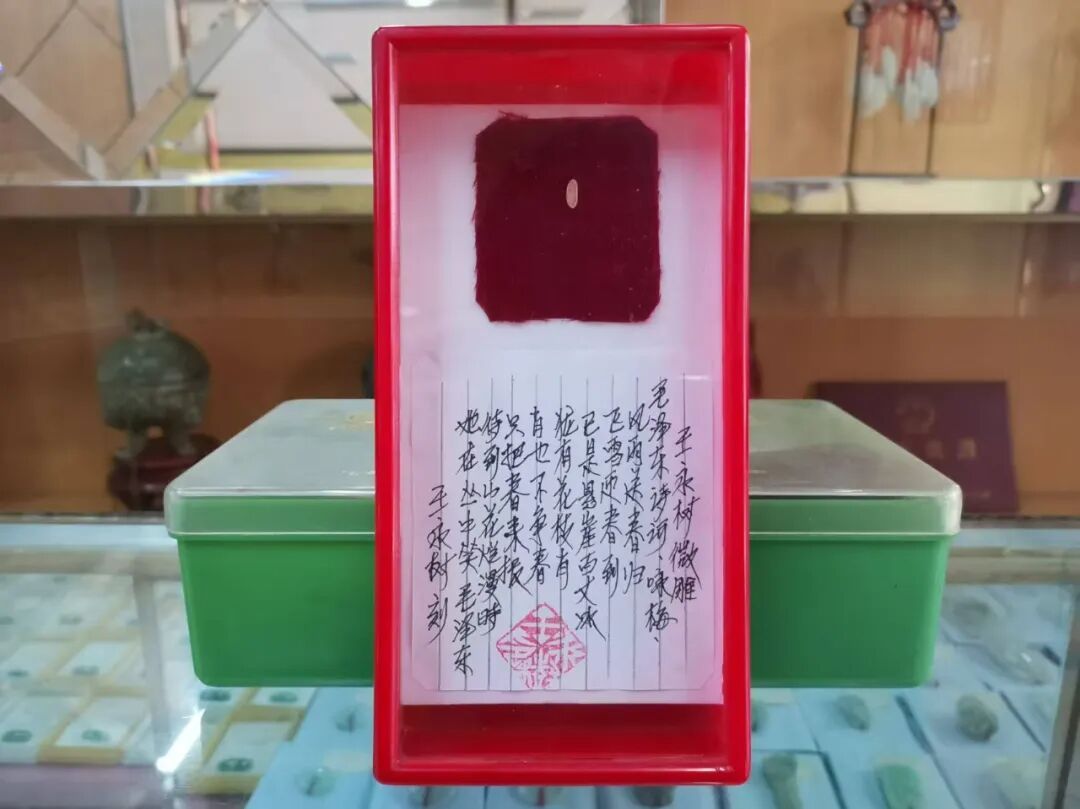 王永树 微雕
毛泽东诗词、咏梅、
风雨送春归
飞雪迎春到
已是悬崖百丈冰
犹有花枝肖
肖也不争春
只把春来报
待到山花烂漫时
她在丛中笑 毛泽东
王永树刻